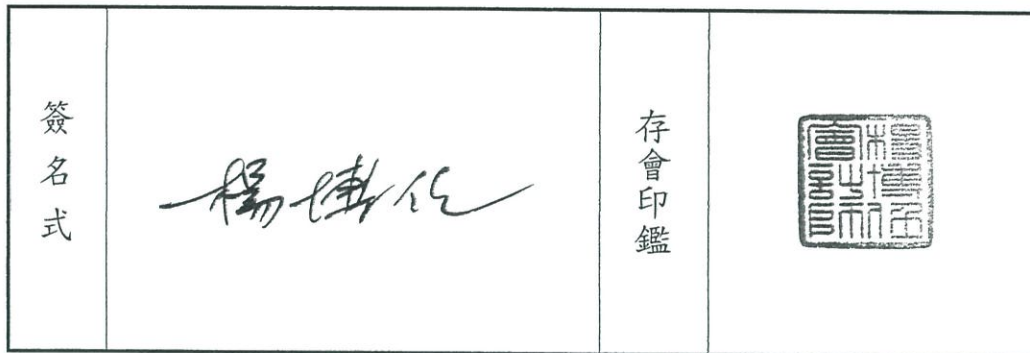 簽名式
楊博任
存會印鑑
楊博任會計師